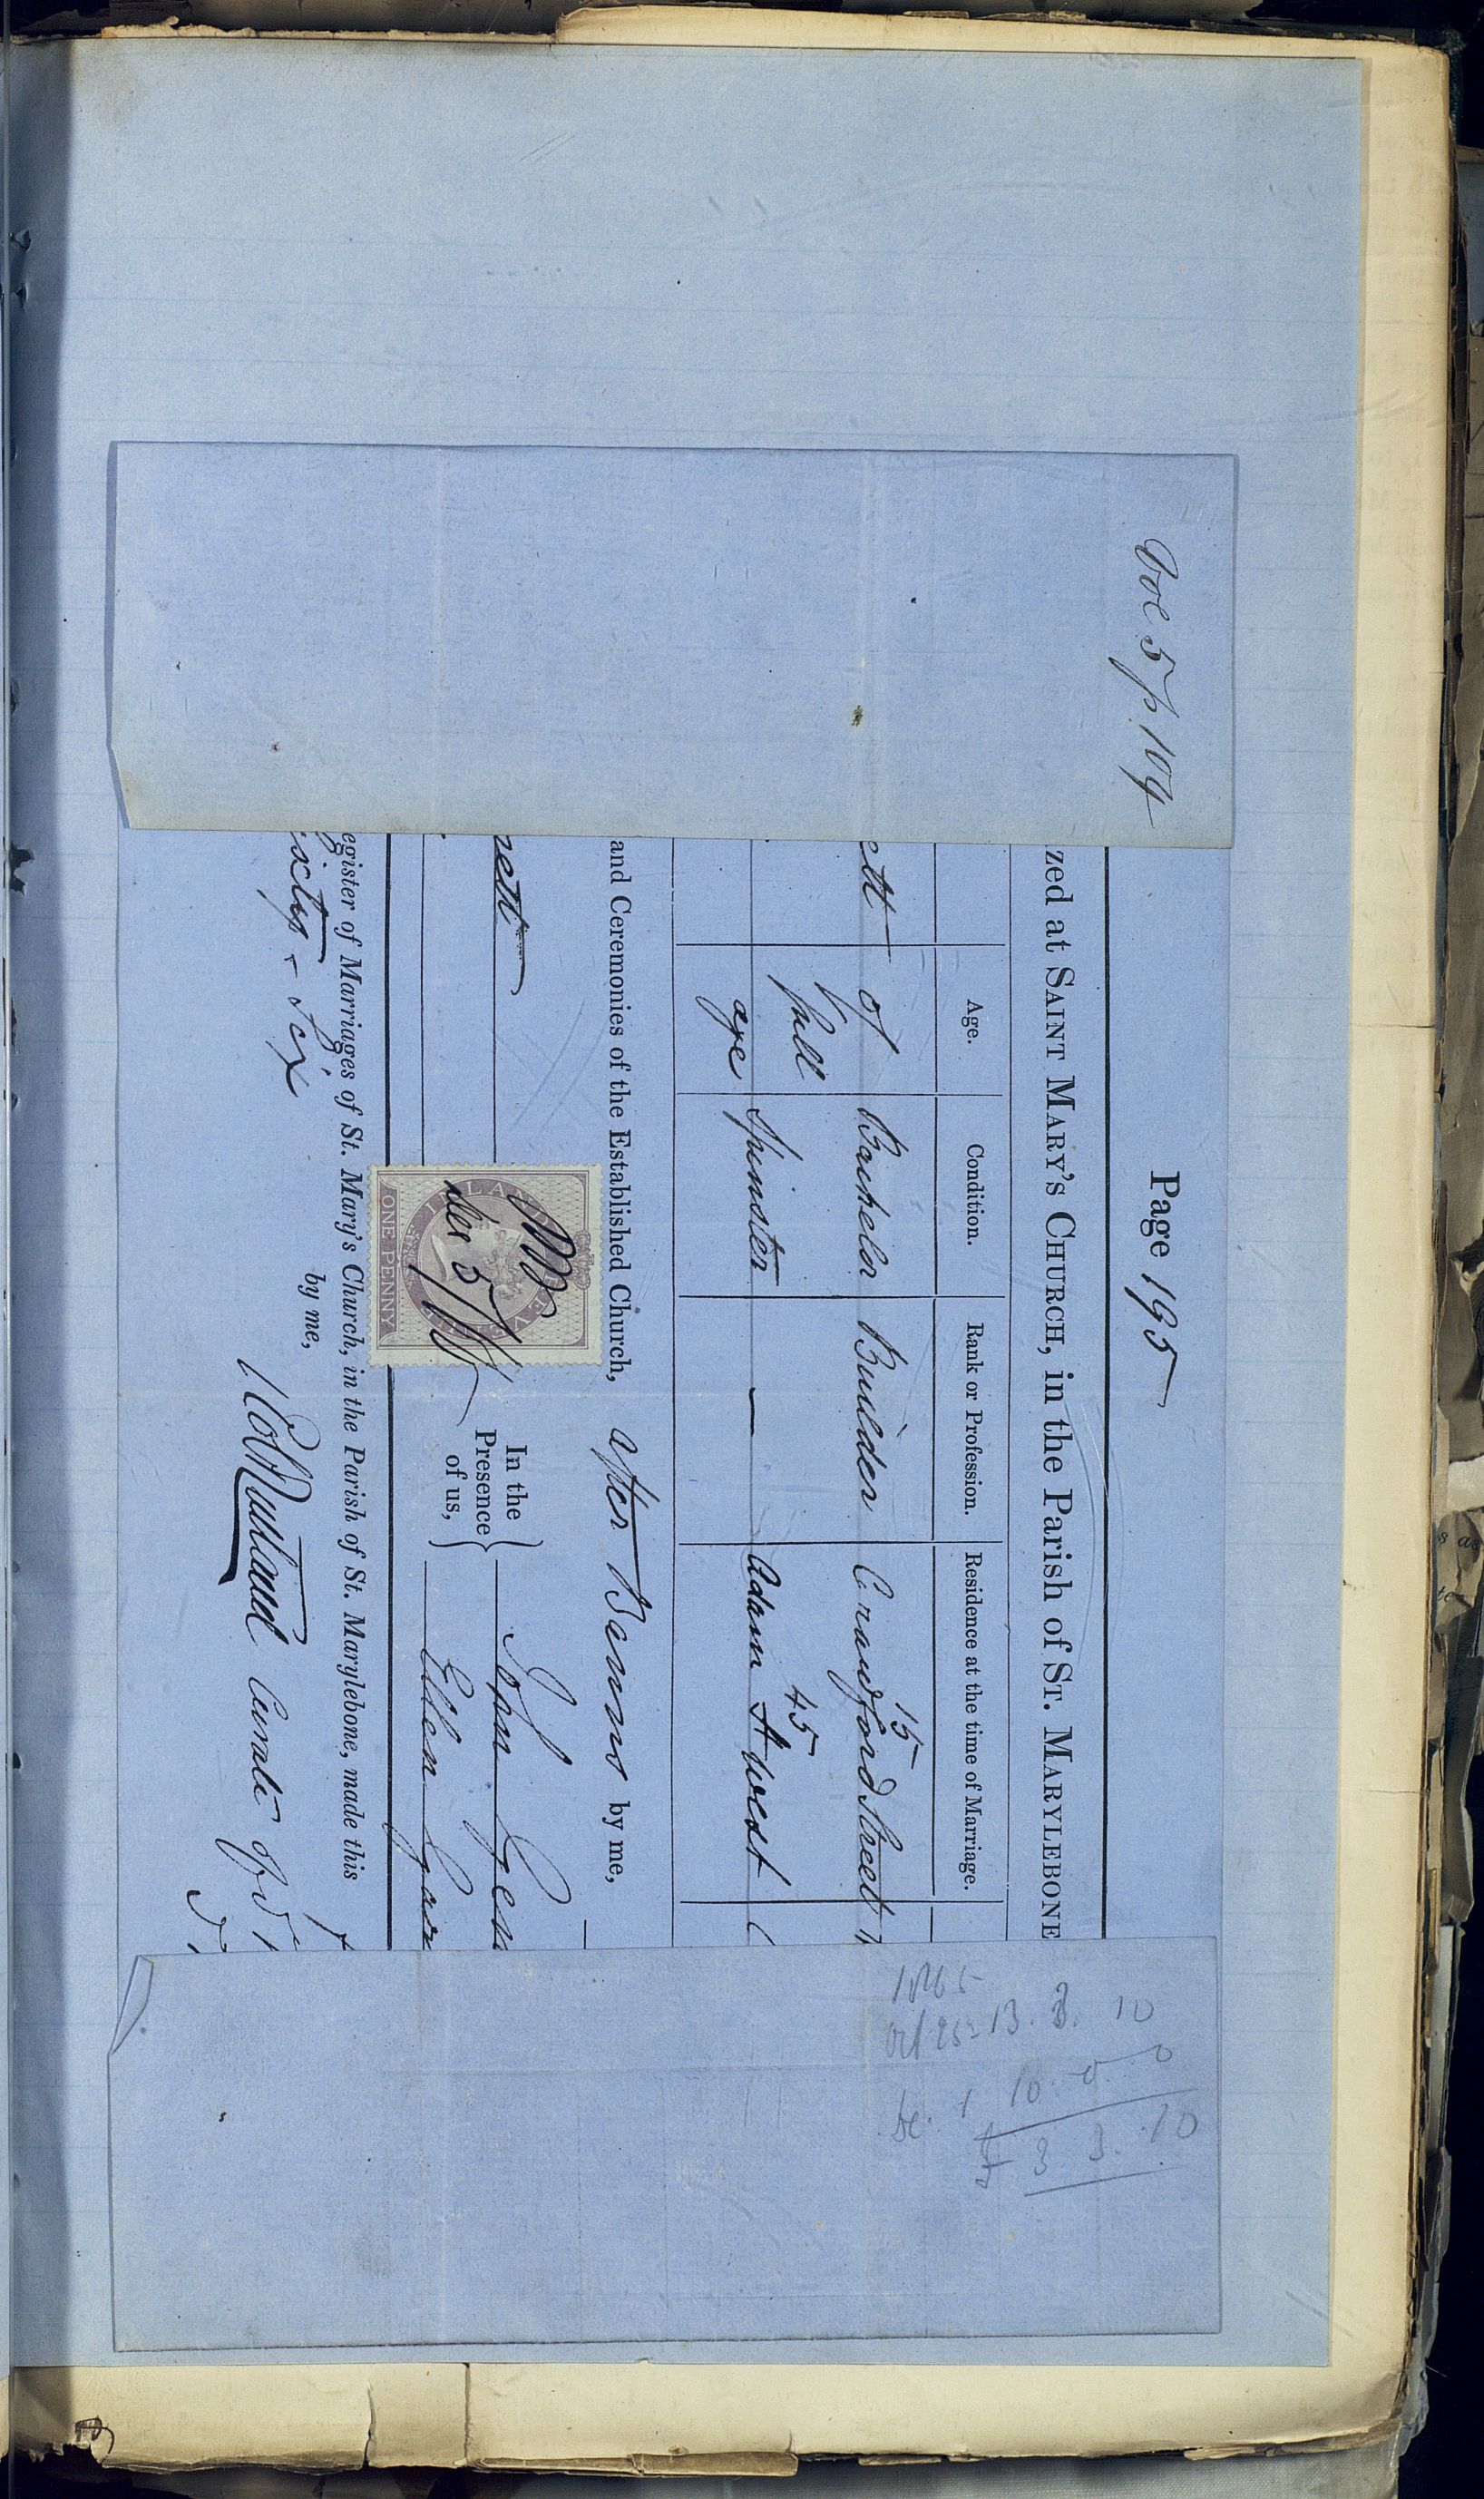 Voc 5 p 104
Page 195
zed at Saint Mary's Church, in the Parish of St. Marylebone
Age. Condition. Rank or Profession. Residence at the time of Marriage.
ett of Bachelor Builder 15 Crawford Street
full
age Spinster — 45 Adam St West
and Ceremonies of the Established Church, after Banns by me,
nett In the Presence of us, John
Ellen
INLAND REVENUE
ONE PENNY
Dec 5/66
egister of Marriages of St. Mary's Church, in the Parish of St. Marylebone, made this
ixty - Six
by me,
Rutland Curate of
1865
Oct 25 13. 3. 10
De. 1 10 0 0
£ 3 3. 10